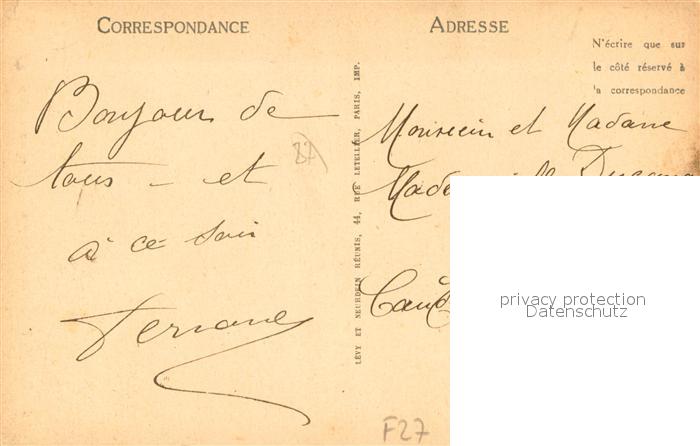 CORRESPONDANCE
ADRESSE
N'écrire que sur
le côté réservé à
la correspondance
Bonjour de
tous - et
à ce soir
Fernand
37
LÉVY ET NEURDEIN RÉUNIS, 44, RUE LETELLIER, PARIS, IMP.
Monsieur et Madame
privacy protection
Datenschutz
F27